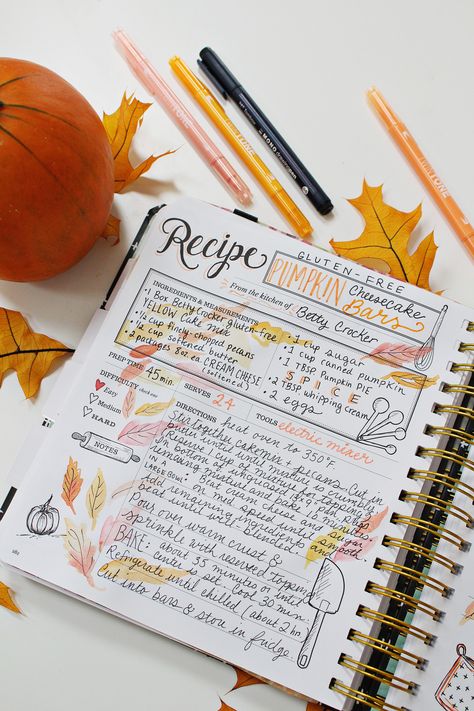 Recipe
GLUTEN-FREE
PUMPKIN Cheesecake
Bars
From the kitchen of Betty Crocker
INGREDIENTS & MEASUREMENTS
• 1 Box Betty Crocker gluten-free
YELLOW Cake mix
• ½ cup finely chopped pecans
• ½ cup softened butter
• 2 packages 8oz ea CREAM CHEESE
(softened)
• 1 cup sugar
• 1 cup canned pumpkin
• 1 TBSP Pumpkin PIE
SPICE
• 2 TBSP. whipping cream
• 2 eggs
PREP TIME 45 min.
SERVES 24
TOOLS electric mixer
DIFFICULTY check one
Easy
Medium
HARD
NOTES
DIRECTIONS heat oven to 350°F
Stir together cakemix & pecans. Cut in
butter until mixture is crumbly.
Reserve 1 cup of mixture for topping.
remaining mixture and bake
LARGE BOWL: Beat cream cheese and sugar
on med speed until smooth.
Add remaining ingredients
beat until well blended.
Pour over warm crust &
sprinkle with reserved topping
BAKE: about 35 minutes or until
center is set. Cool 30 min.
Refrigerate until chilled (about 2 hr)
Cut into bars & store in fridge